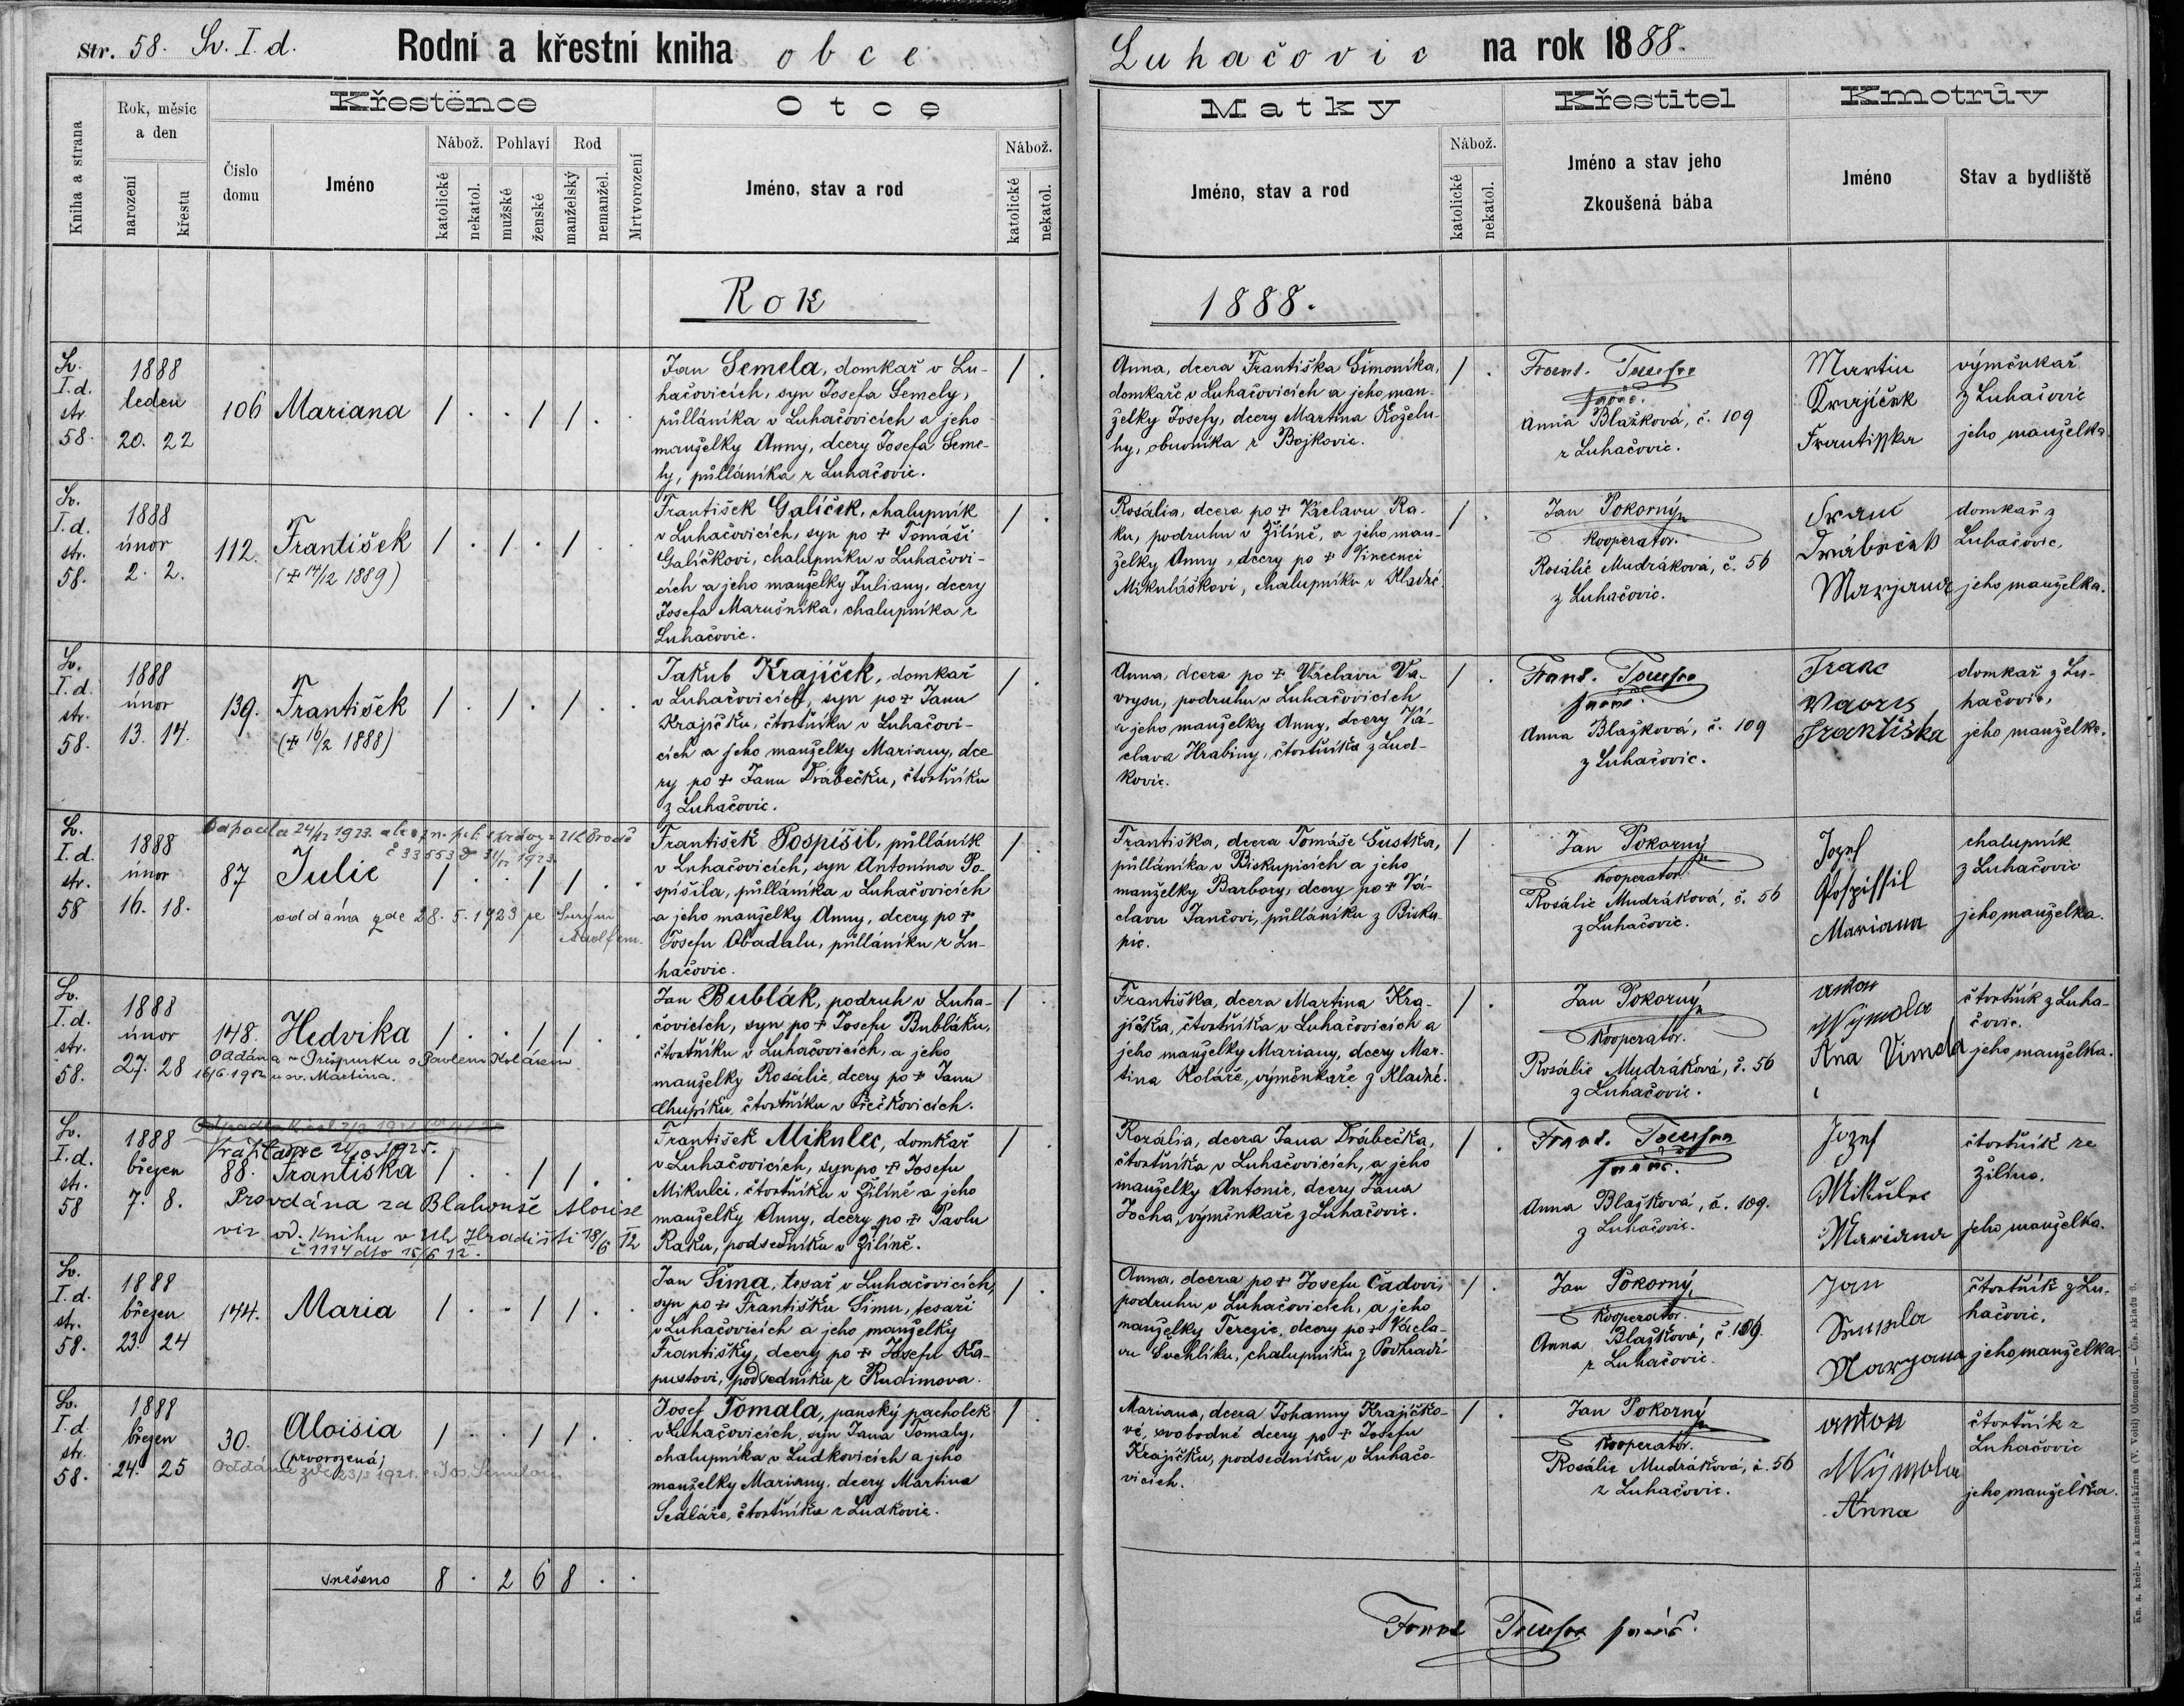 Str. 58. Sv. I. d.
Rodní a křestní kniha obce
Luhačovic na rok 1888.
Kniha a strana
Rok, měsíc
a den
narození
křestu
Křestěnce
Číslo
domu
Jméno
Nábož.
katolické
nekatol.
Pohlaví
mužské
ženské
Rod
manželský
nemanžel.
Mrtvorození
Otce
Jméno, stav a rod
Nábož.
katolické
nekatol.
Matky
Jméno, stav a rod
Nábož.
katolické
nekatol.
Křestitel
Jméno a stav jeho
Zkoušená bába
Kmotrův
Jméno
Stav a bydliště
Rok
1888.
Sv.
I. d.
str.
58.
1888
leden
20. 22
106 Mariana / . . / / .
Jan Semela, domkař v Lu-
hačovicích, syn Josefa Semely,
půlláníka v Luhačovicích a jeho
manželky Anny, dcery Josefa Seme-
ly, půlláníka z Luhačovic.
/ .
Anna, dcera Františka Šimoníka,
domkaře v Luhačovicích a jeho man-
želky Josefy, dcery Martina Koželu-
hy, obuvníka z Bojkovic.
/ .
Anna Blažková, č. 109
z Luhačovic.
Martin
Krajíček
Frantisska
výměnkař
z Luhačovic
jeho manželka.
Sv.
I. d.
str.
58.
1888
únor
2. 2.
112. František / . / . / . .
(+ 14/12 1889)
František Galíček, chalupník
v Luhačovicích, syn po + Tomáši
Galíčkovi, chalupníku v Luhačovi-
cích a jeho manželky Juliany, dcery
Josefa Marušníka, chalupníka z
Luhačovic.
/ .
Rosália, dcera po + Václavu Ra-
ku, podruhu v Žilíně, a jeho man-
želky Anny, dcery po + Vincenci
Mikuláškovi, chalupníku v Kladné.
/ .
Jan Pokorný
Kooperator.
Rosálie Mudráková, č. 56
z Luhačovic.
Franc
Drábeček
Marjana
domkař z
Luhačovic,
jeho manželka.
Sv.
I. d.
str.
58.
1888
únor
13. 14.
139. František / . / . / . .
(+ 16/2 1888)
Jakub Krajíček, domkař
v Luhačovicích, syn po + Janu
Krajíčku, čtvrtníku v Luhačovi-
cích a jeho manželky Mariany, dce
ry po + Janu Drábečku, čtvrtníku
z Luhačovic.
/ .
Anna, dcera po + Václavu Va-
vrysu, podruhu v Luhačovicích
a jeho manželky Anny, dcery Vá-
clava Hrabiny, čtvrtníka z Lud-
kovic.
/ .
Anna Blažková, č. 109
z Luhačovic.
Franc
Vaoris
Františka
domkař z Lu-
hačovic,
jeho manželka.
Sv.
I. d.
str.
58
1888
únor
16. 18.
Odpadla 24/12 1923
č 33553 31/12 1923.
87 Julie / . . / / . .
oddána zde 28. 5. 1923 se
Adolfem.
František Pospíšil, půlláník
v Luhačovicích, syn Antonína Po-
spíšila, půlláníka v Luhačovicích
a jeho manželky Anny, dcery po +
Josefu Obadalu, půlláníku z Lu-
hačovic.
/ .
Františka, dcera Tomáše Šustka,
půlláníka v Biskupicích a jeho
manželky Barbory, dcery po + Vá-
clavu Jančovi, půlláníku z Bisku-
pic.
/ .
Jan Pokorný
Kooperator.
Rosálie Mudráková, č. 56
z Luhačovic.
Jozef
Pospissil
Mariana
chalupník
z Luhačovic
jeho manželka.
Sv.
I. d.
str.
58.
1888
únor
27. 28
148. Hedvika / . . / / . .
Oddána v Prešpurku s Pavlem Kolářem
16/6. 1912 u sv. Martina.
Jan Bublák, podruh v Luha-
čovicích, syn po + Josefu Bubláku,
čtvrtníku v Luhačovicích, a jeho
manželky Rosálie, dcery po + Janu
Chupíku, čtvrtníku v Řečkovicích.
/ .
Františka, dcera Martina Kra-
jíčka, čtvrtníka v Luhačovicích a
jeho manželky Mariany, dcery Mar-
tina Koláře, výměnkaře z Kladné.
/ .
Jan Pokorný
Kooperator.
Rosálie Mudráková, č. 56
z Luhačovic.
anton
Wýmola
Ana Vimola
čtvrtník z Luha-
čovic.
jeho manželka.
Sv.
I. d.
str.
58
1888
březen
7. 8.
1925.
88. Františka / . . / / . .
Provdána za Blahouše Aloise
viz od. knihu v Uh. Hradišti 18/6 12
č 1114 dto 15/6 12.
František Mikulec, domkař
v Luhačovicích, syn po + Josefu
Mikulci, čtvrtníku v Žilíně a jeho
manželky Anny, dcery po + Pavlu
Raku, podsedníku v Žilíně.
/ .
Rozália, dcera Jana Drábečka,
čtvrtníka v Luhačovicích, a jeho
manželky Antonie, dcery Jana
Jocha, výměnkaře z Luhačovic.
/ .
Anna Blažková, č. 109.
z Luhačovic.
Jozef
Mikulec
Mariana
čtvrtník ze
Žilína,
jeho manželka.
Sv.
I. d.
str.
58.
1888
březen
23. 24
144. Maria / . . / / . .
Jan Šima, tesař v Luhačovicích,
syn po + Františku Šimu, tesaři
v Luhačovicích a jeho manželky
Františky, dcery po + Josefu Ka-
pustovi, podsedníku z Rudimova.
/ .
Anna, dcera po + Josefu Čadovi,
podruhu v Luhačovicích, a jeho
manželky Terezie, dcery po + Václa-
vu Švehlíku, chalupníku z Podhradí
/ .
Jan Pokorný,
Kooperator.
Anna Blažková, č. 109.
z Luhačovic.
Jan
Semela
Marjana
čtvrtník z Lu-
hačovic,
jeho manželka.
Sv.
I. d.
str.
58.
1888
březen
24. 25
30. Aloisia / . . / / . .
(prvorozená)
Oddána zde 23/5 1921. s Jos. Semelou
Josef Tomala, panský pacholek
v Luhačovicích, syn Jana Tomaly,
chalupníka v Ludkovicích a jeho
manželky Mariany, dcery Martina
Sedláře, čtvrtníka z Ludkovic.
/ .
Mariana, dcera Johanny Krajíčko-
vé, svobodné dcery po + Josefu
Krajíčku, podsedníku v Luhačo-
vicích.
/ .
Jan Pokorný
Kooperator.
Rosálie Mudráková, č. 56
z Luhačovic.
anton
Wýmola
Anna
čtvrtník z
Luhačovic
jeho manželka.
snešeno 8 . 2 6 8 . .
Kn. a. kněh- a kamenotiskárna (V. Vohl) Olomouci. — Čís. skladu 6.